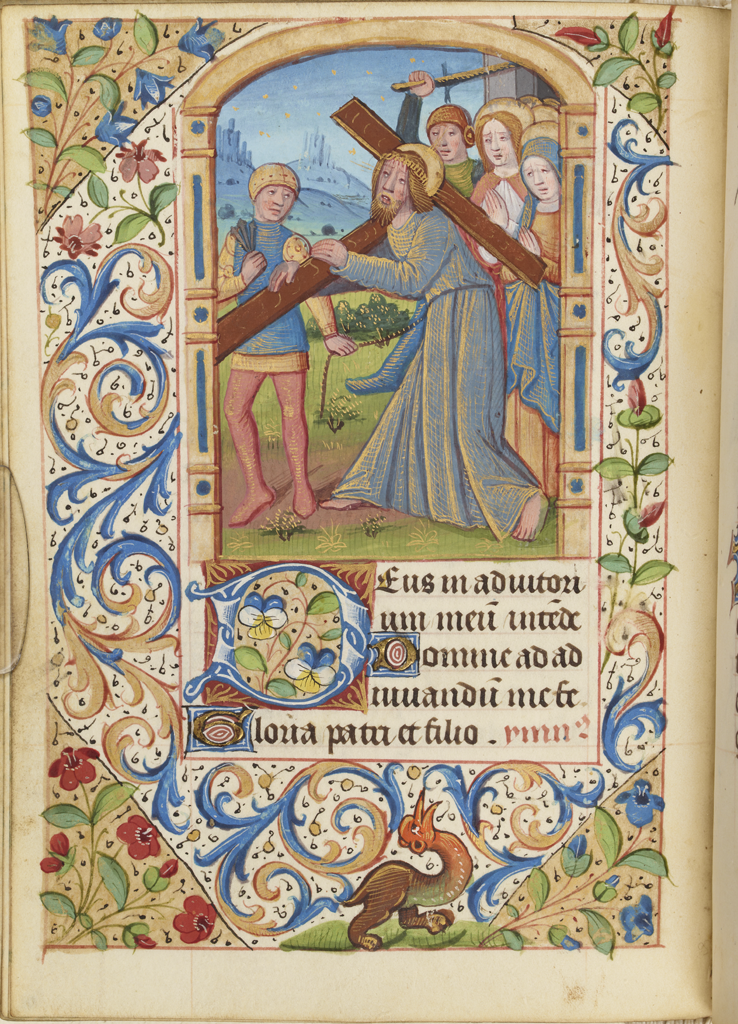 Deus in adiutori
um meū intēde
Domine ad ad
iuuandū me fe.
Gloria patri et filio . ymnꝰ